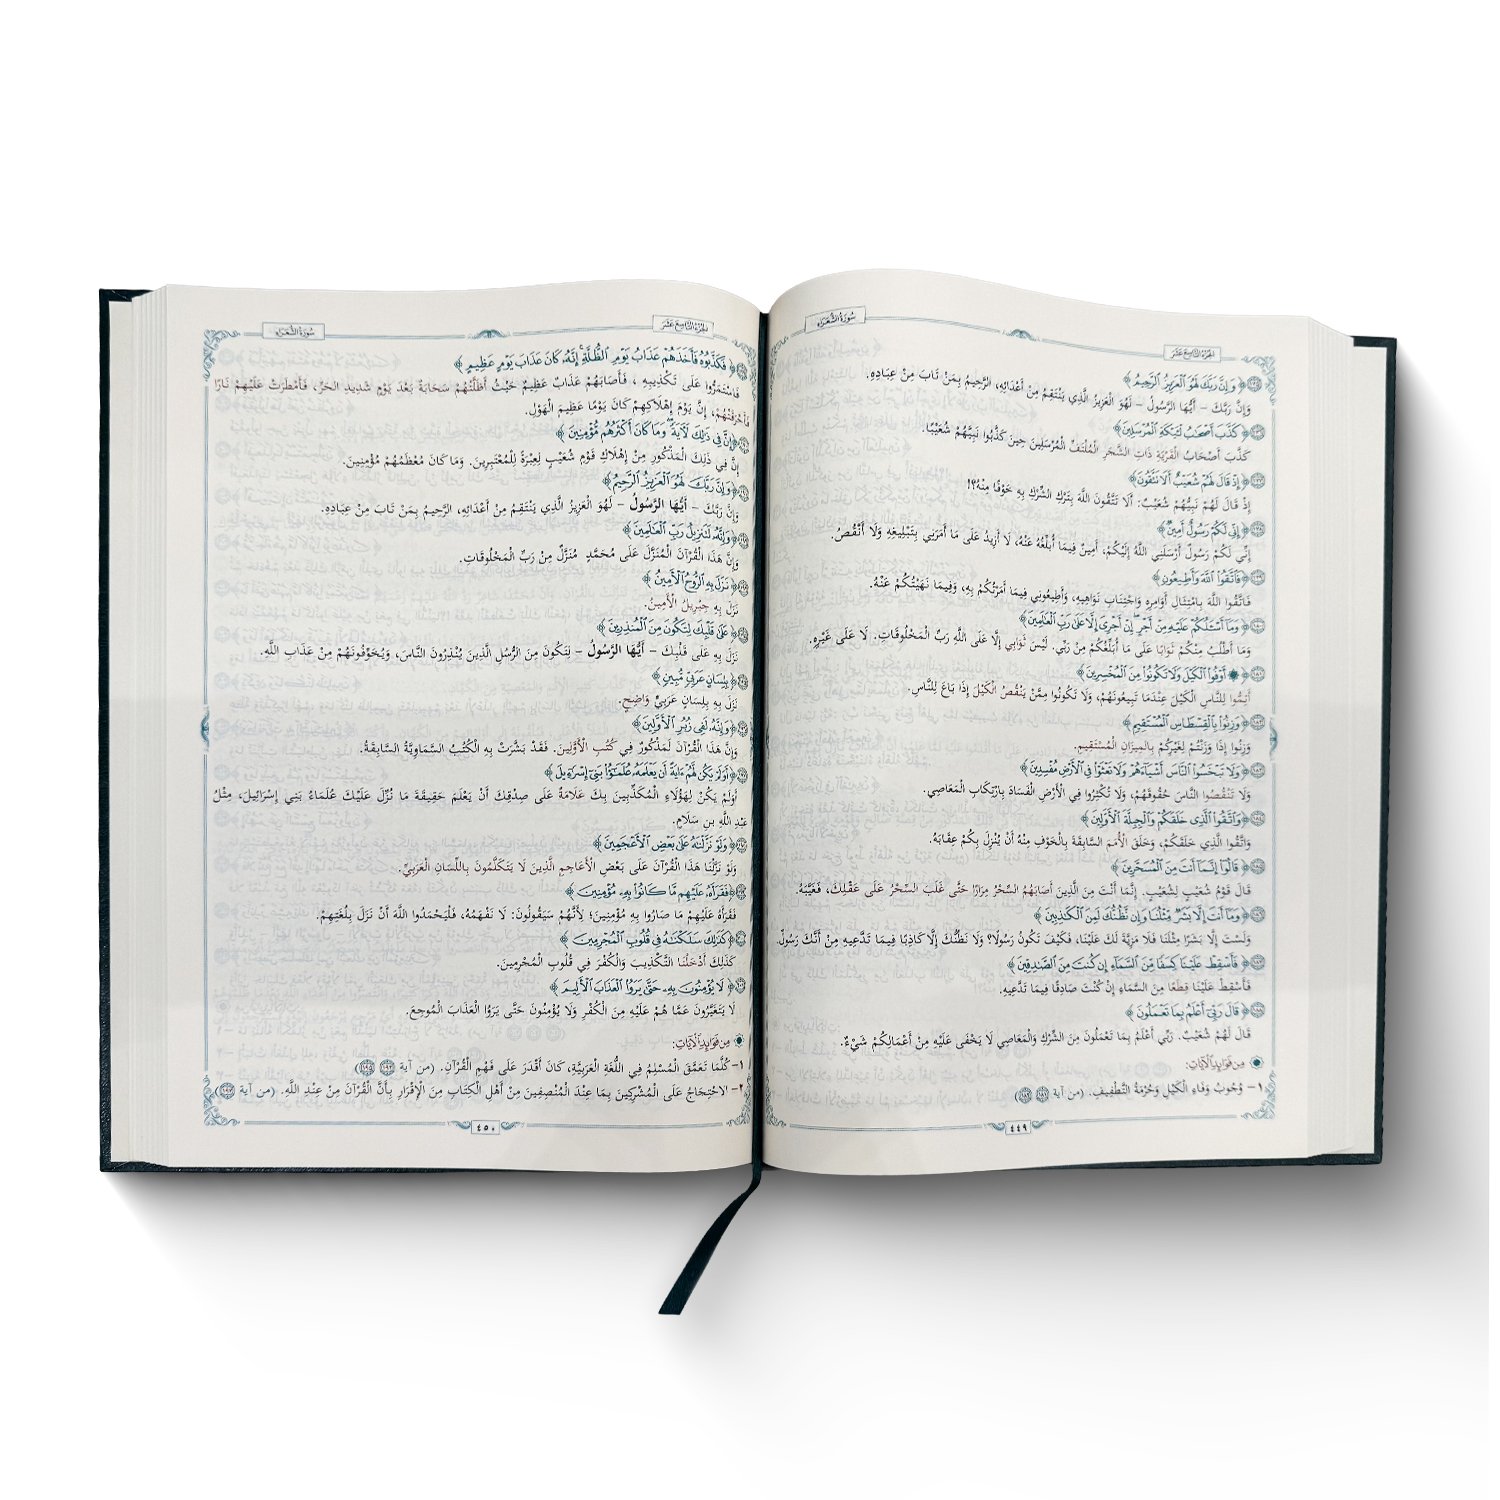 سُورَةُ الشُّعَرَاءِ
الجُزْءُ التَّاسِعَ عَشَرَ
﴿وَإِنَّ رَبَّكَ لَهُوَ ٱلْعَزِيزُ ٱلرَّحِيمُ﴾
وَإِنَّ رَبَّكَ – أَيُّهَا الرَّسُولُ – لَهُوَ الْعَزِيزُ الَّذِي يَنْتَقِمُ مِنْ أَعْدَائِهِ، الرَّحِيمُ بِمَنْ تَابَ مِنْ عِبَادِهِ.
﴿كَذَّبَ أَصْحَٰبُ لْـَٔيْكَةِ ٱلْمُرْسَلِينَ﴾
كَذَّبَ أَصْحَابُ الْقَرْيَةِ ذَاتِ الشَّجَرِ الْمُلْتَفِّ الْمُرْسَلِينَ حِينَ كَذَّبُوا نَبِيَّهُمْ شُعَيْبًا.
﴿إِذْ قَالَ لَهُمْ شُعَيْبٌ أَلَا تَتَّقُونَ﴾
إِذْ قَالَ لَهُمْ نَبِيُّهُمْ شُعَيْبٌ: أَلَا تَتَّقُونَ اللَّهَ بِتَرْكِ الشِّرْكِ بِهِ خَوْفًا مِنْهُ؟!
﴿إِنِّى لَكُمْ رَسُولٌ أَمِينٌ﴾
إِنِّي لَكُمْ رَسُولٌ أَرْسَلَنِي اللَّهُ إِلَيْكُمْ، أَمِينٌ فِيمَا أُبَلِّغُهُ عَنْهُ، لَا أَزِيدُ عَلَى مَا أَمَرَنِي بِتَبْلِيغِهِ وَلَا أَنْقُصُ.
﴿فَٱتَّقُوا۟ ٱللَّهَ وَأَطِيعُونِ﴾
فَاتَّقُوا اللَّهَ بِامْتِثَالِ أَوَامِرِهِ وَاجْتِنَابِ نَوَاهِيهِ، وَأَطِيعُونِي فِيمَا أَمَرْتُكُمْ بِهِ، وَفِيمَا نَهَيْتُكُمْ عَنْهُ.
﴿وَمَآ أَسْـَٔلُكُمْ عَلَيْهِ مِنْ أَجْرٍ إِنْ أَجْرِىَ إِلَّا عَلَىٰ رَبِّ ٱلْعَٰلَمِينَ﴾
وَمَا أَطْلُبُ مِنْكُمْ ثَوَابًا عَلَى مَا أُبَلِّغُكُمْ مِنْ رَبِّي. لَيْسَ ثَوَابِي إِلَّا عَلَى اللَّهِ رَبِّ الْمَخْلُوقَاتِ. لَا عَلَى غَيْرِهِ.
﴿۞ أَوْفُوا۟ ٱلْكَيْلَ وَلَا تَكُونُوا۟ مِنَ ٱلْمُخْسِرِينَ﴾
أَتِمُّوا لِلنَّاسِ الْكَيْلَ عِنْدَمَا تَبِيعُونَهُمْ، وَلَا تَكُونُوا مِمَّنْ يَنْقُصُ الْكَيْلَ إِذَا بَاعَ لِلنَّاسِ.
﴿وَزِنُوا۟ بِٱلْقِسْطَاسِ ٱلْمُسْتَقِيمِ﴾
وَزِنُوا إِذَا وَزَنْتُمْ لِغَيْرِكُمْ بِالْمِيزَانِ الْمُسْتَقِيمِ.
﴿وَلَا تَبْخَسُوا۟ ٱلنَّاسَ أَشْيَآءَهُمْ وَلَا تَعْثَوْا۟ فِى ٱلْأَرْضِ مُفْسِدِينَ﴾
وَلَا تَنْقُصُوا النَّاسَ حُقُوقَهُمْ، وَلَا تُكْثِرُوا فِي الْأَرْضِ الْفَسَادَ بِارْتِكَابِ الْمَعَاصِي.
﴿وَٱتَّقُوا۟ ٱلَّذِى خَلَقَكُمْ وَٱلْجِبِلَّةَ ٱلْأَوَّلِينَ﴾
وَاتَّقُوا الَّذِي خَلَقَكُمْ، وَخَلَقَ الْأُمَمَ السَّابِقَةَ بِالْخَوْفِ مِنْهُ أَنْ يُنْزِلَ بِكُمْ عِقَابَهُ.
﴿قَالُوٓا۟ إِنَّمَآ أَنتَ مِنَ ٱلْمُسَحَّرِينَ﴾
قَالَ قَوْمُ شُعَيْبٍ لِشُعَيْبٍ. إِنَّمَا أَنْتَ مِنَ الَّذِينَ أَصَابَهُمُ السِّحْرُ مِرَارًا حَتَّى غَلَبَ السِّحْرُ عَلَى عَقْلِكَ، فَغَيَّبَهُ
﴿وَمَآ أَنتَ إِلَّا بَشَرٌ مِّثْلُنَا وَإِن نَّظُنُّكَ لَمِنَ ٱلْكَٰذِبِينَ﴾
وَلَسْتَ إِلَّا بَشَرًا مِثْلَنَا فَلَا مَزِيَّةَ لَكَ عَلَيْنَا، فَكَيْفَ تَكُونُ رَسُولًا؟ وَلَا نَظُنُّكَ إِلَّا كَاذِبًا فِيمَا تَدَّعِيهِ مِنْ أَنَّكَ رَسُولٌ.
﴿فَأَسْقِطْ عَلَيْنَا كِسَفًا مِّنَ ٱلسَّمَآءِ إِن كُنتَ مِنَ ٱلصَّٰدِقِينَ﴾
فَأَسْقِطْ عَلَيْنَا قِطَعًا مِنَ السَّمَاءِ إِنْ كُنْتَ صَادِقًا فِيمَا تَدَّعِيهِ.
﴿قَالَ رَبِّىٓ أَعْلَمُ بِمَا تَعْمَلُونَ﴾
قَالَ لَهُمْ شُعَيْبٌ. رَبِّي أَعْلَمُ بِمَا تَعْمَلُونَ مِنَ الشِّرْكِ وَالْمَعَاصِي لَا يَخْفَى عَلَيْهِ مِنْ أَعْمَالِكُمْ شَيْءٌ.
مِن فَوَائِدِ الآيَاتِ:
١- وُجُوبُ وَفَاءِ الْكَيْلِ وَحُرْمَةُ التَّطْفِيفِ. (من آية
٤٤٩
الجُزْءُ التَّاسِعَ عَشَرَ
سُورَةُ الشُّعَرَاءِ
﴿فَكَذَّبُوهُ فَأَخَذَهُمْ عَذَابُ يَوْمِ ٱلظُّلَّةِ إِنَّهُۥ كَانَ عَذَابَ يَوْمٍ عَظِيمٍ﴾
فَاسْتَمَرُّوا عَلَى تَكْذِيبِهِ ، فَأَصَابَهُمْ عَذَابٌ عَظِيمٌ حَيْثُ أَظَلَّتْهُمْ سَحَابَةٌ بَعْدَ يَوْمٍ شَدِيدِ الْحَرِّ، فَأَمْطَرَتْ عَلَيْهِمْ نَارًا
فَأَحْرَقَتْهُمْ، إِنَّ يَوْمَ إِهْلَاكِهِمْ كَانَ يَوْمًا عَظِيمَ الْهَوْلِ.
﴿إِنَّ فِى ذَٰلِكَ لَءَايَةً وَمَا كَانَ أَكْثَرُهُم مُّؤْمِنِينَ﴾
إِنَّ فِي ذَلِكَ الْمَذْكُورِ مِنْ إِهْلَاكِ قَوْمِ شُعَيْبٍ لَعِبْرَةً لِلْمُعْتَبِرِينَ. وَمَا كَانَ مُعْظَمُهُمْ مُؤْمِنِينَ.
﴿وَإِنَّ رَبَّكَ لَهُوَ ٱلْعَزِيزُ ٱلرَّحِيمُ﴾
وَإِنَّ رَبَّكَ – أَيُّهَا الرَّسُولُ – لَهُوَ الْعَزِيزُ الَّذِي يَنْتَقِمُ مِنْ أَعْدَائِهِ، الرَّحِيمُ بِمَنْ تَابَ مِنْ عِبَادِهِ.
﴿وَإِنَّهُۥ لَتَنزِيلُ رَبِّ ٱلْعَٰلَمِينَ﴾
وَإِنَّ هَذَا الْقُرْآنَ الْمُنَزَّلَ عَلَى مُحَمَّدٍ مُنَزَّلٌ مِنْ رَبِّ الْمَخْلُوقَاتِ.
﴿نَزَلَ بِهِ ٱلرُّوحُ ٱلْأَمِينُ﴾
نَزَلَ بِهِ جِبْرِيلُ الْأَمِينُ.
﴿عَلَىٰ قَلْبِكَ لِتَكُونَ مِنَ ٱلْمُنذِرِينَ﴾
نَزَلَ بِهِ عَلَى قَلْبِكَ – أَيُّهَا الرَّسُولُ – لِتَكُونَ مِنَ الرُّسُلِ الَّذِينَ يُنْذِرُونَ النَّاسَ، وَيُخَوِّفُونَهُمْ مِنْ عَذَابِ اللَّهِ.
﴿بِلِسَانٍ عَرَبِىٍّ مُّبِينٍ﴾
نَزَلَ بِهِ بِلِسَانٍ عَرَبِيٍّ وَاضِحٍ.
﴿وَإِنَّهُۥ لَفِى زُبُرِ ٱلْأَوَّلِينَ﴾
وَإِنَّ هَذَا الْقُرْآنَ لَمَذْكُورٌ فِي كُتُبِ الْأَوَّلِينَ. فَقَدْ بَشَّرَتْ بِهِ الْكُتُبُ السَّمَاوِيَّةُ السَّابِقَةُ.
﴿أَوَلَمْ يَكُن لَّهُمْ ءَايَةً أَن يَعْلَمَهُۥ عُلَمَٰٓؤُا۟ بَنِىٓ إِسْرَٰٓءِيلَ﴾
أَوَلَمْ يَكُنْ لِهَؤُلَاءِ الْمُكَذِّبِينَ بِكَ عَلَامَةً عَلَى صِدْقِكَ أَنْ يَعْلَمَ حَقِيقَةَ مَا نُزِّلَ عَلَيْكَ عُلَمَاءُ بَنِي إِسْرَائِيلَ، مِثْلُ
عَبْدِ اللَّهِ بنِ سَلَامٍ.
﴿وَلَوْ نَزَّلْنَٰهُ عَلَىٰ بَعْضِ ٱلْأَعْجَمِينَ﴾
وَلَوْ نَزَّلْنَا هَذَا الْقُرْآنَ عَلَى بَعْضِ الْأَعَاجِمِ الَّذِينَ لَا يَتَكَلَّمُونَ بِاللِّسَانِ الْعَرَبِيِّ.
﴿فَقَرَأَهُۥ عَلَيْهِم مَّا كَانُوا۟ بِهِۦ مُؤْمِنِينَ﴾
فَقَرَأَهُ عَلَيْهِمْ مَا صَارُوا بِهِ مُؤْمِنِينَ؛ لِأَنَّهُمْ سَيَقُولُونَ: لَا نَفْهَمُهُ، فَلْيَحْمَدُوا اللَّهَ أَنْ نَزَلَ بِلُغَتِهِمْ.
﴿كَذَٰلِكَ سَلَكْنَٰهُ فِى قُلُوبِ ٱلْمُجْرِمِينَ﴾
كَذَلِكَ أَدْخَلْنَا التَّكْذِيبَ وَالْكُفْرَ فِي قُلُوبِ الْمُجْرِمِينَ.
﴿لَا يُؤْمِنُونَ بِهِۦ حَتَّىٰ يَرَوُا۟ ٱلْعَذَابَ ٱلْأَلِيمَ﴾
لَا يَتَغَيَّرُونَ عَمَّا هُمْ عَلَيْهِ مِنَ الْكُفْرِ وَلَا يُؤْمِنُونَ حَتَّى يَرَوُا الْعَذَابَ الْمُوجِعَ.
مِن فَوَائِدِ الآيَاتِ:
١- كُلَّمَا تَعَمَّقَ الْمُسْلِمُ فِي اللُّغَةِ الْعَرَبِيَّةِ، كَانَ أَقْدَرَ عَلَى فَهْمِ الْقُرْآنِ. (من آية
٢- الاحْتِجَاجُ عَلَى الْمُشْرِكِينَ بِمَا عِنْدَ الْمُنْصِفِينَ مِنْ أَهْلِ الْكِتَابِ مِنَ الْإِقْرَارِ بِأَنَّ الْقُرْآنَ مِنْ عِنْدِ اللَّهِ. (من آية
٤٥٠